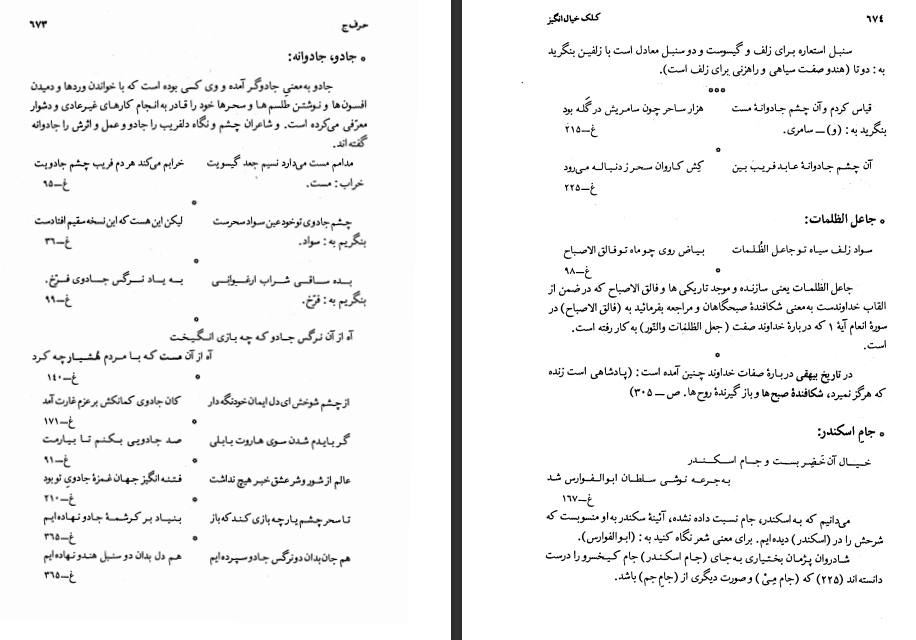 حرف ج
٦٧٣
° جادو، جادوانه:
جادو به‌معنی جادوگر آمده و وی کسی بوده است که با خواندن وردها و دمیدن
افسون‌ها و نوشتن طلسم‌ها و سحرها خود را قادر به انجام کارهای غیرعادی و دشوار
معرّفی می‌کرده است. و شاعران چشم و نگاه دلفریب را جادو و عمل و اثرش را جادوانه
گفته‌اند.
مدامم مست می‌دارد نسیم جعد گیسویت خرابم می‌کند هر دم فریب چشم جادویت
خراب: مست. غ—٩٥
°
چشم جادوی تو خود عین سواد سحرست لیکن این هست که این نسخه سقیم افتادست
بنگریم به: سواد. غ—٣٦
°
بده ساقی شراب ارغوانی به یاد نرگس جادوی فرّخ.
بنگریم به: فرّخ. غ—٩٩
°
آه از آن نرگس جادو که چه بازی انگیخت
آه از آن مست که با مردم هُشیار چه کرد
° غ—١٤٠
از چشم شوخش ای دل ایمان خود نگه دار کان جادوی کمانکش بر عزم غارت آمد
° غ—١٧١
گر بایدم شدن سوی هاروت بابلی صد جادویی بکنم تا بیارمت
° غ—٩١
عالم از شور و شر عشق خبر هیچ نداشت فتنه‌انگیز جهان غمزهٔ جادوی تو بود
° غ—٢١٠
تا سحر چشم یار چه بازی کند که باز بنیاد بر کرشمهٔ جادو نهاده‌ایم
° غ—٣٦٥
هم جان بدان دو نرگس جادو سپرده‌ایم هم دل بدان دو سنبل هندو نهاده‌ایم
غ—٣٦٥
٦٧٤
کلک خیال‌انگیز
سنبل استعاره برای زلف و گیسوست و دو سنبل معادل است با زلفین بنگرید
به: دوتا (هندو صفت سیاهی و راهزنی برای زلف است).
°°°
قیاس کردم و آن چشم جادوانهٔ مست هزار ساحر چون سامریش در گَله بود
بنگرید به: (و) — سامری. غ—٢١٥
°
آن چشم جادوانهٔ عابدفریب بین کِش کاروان سحر ز دنباله می‌رود
غ—٢٢٥
° جاعل الظلمات:
سواد زلف سیاه تو جاعل الظُّلمات بیاض روی چو ماه تو فالق الاصباح
° غ—٩٨
جاعل الظلمات یعنی سازنده و موجد تاریکی‌ها و فالق الاصباح که در ضمن از
القاب خداوندست به‌معنی شکافندهٔ صبحگاهان و مراجعه بفرمائید به (فالق الاصباح) در
سورهٔ انعام آیهٔ ١ که دربارهٔ خداوند صفت (جعل الظلمات والنّور) به کار رفته است.
است.
°
در تاریخ بیهقی دربارهٔ صفات خداوند چنین آمده است: (پادشاهی است زنده
که هرگز نمیرد، شکافندهٔ صبح‌ها و باز گیرندهٔ روح‌ها. ص — ٣٠٥)
° جامِ اسکندر:
خیال آن خَضِر بست و جام اسکندر
به‌جرعه نوشی سلطان ابوالفوارس شد
غ—١٦٧
می‌دانیم که به اسکندر، جام نسبت داده نشده، آئینهٔ سکندر به او منسوبست که
شرحش را در (اسکندر) دیده‌ایم. برای معنی شعر نگاه کنید به: (ابوالفوارس).
شادروان پژمان بختیاری به‌جای (جام اسکندر) جام کیخسرو را درست
دانسته‌اند (٢٢٥) که (جام مِیْ) و صورت دیگری از (جام جم) باشد.